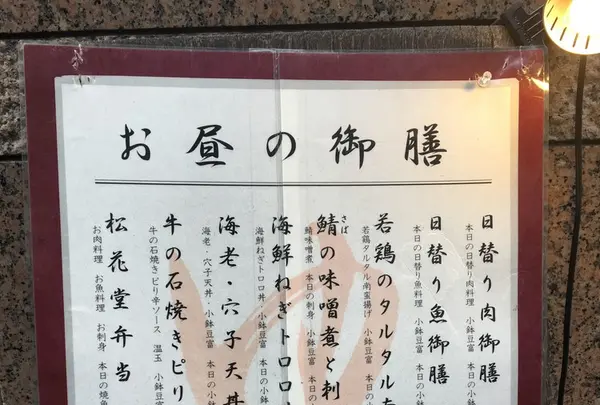 お昼の御膳
日替り肉御膳
本日の日替り肉料理 小鉢豆富
日替り魚御膳
本日の日替り魚料理 小鉢豆富
若鶏のタルタル南
若鶏タルタル南蛮揚げ 小鉢豆富
さば
鯖の味噌煮と刺
鯖味噌煮 本日の刺身 小鉢豆富
海鮮ねぎトロロ
海鮮ねぎトロロ丼 小鉢豆富 本日の小
海老・穴子天丼
海老・穴子天丼 小鉢豆富 本日の小
牛の石焼きピリ
牛の石焼きピリ辛ソース 温玉 小鉢豆富
松花堂弁当
お肉料理 お魚料理 お刺身 本日の焼魚